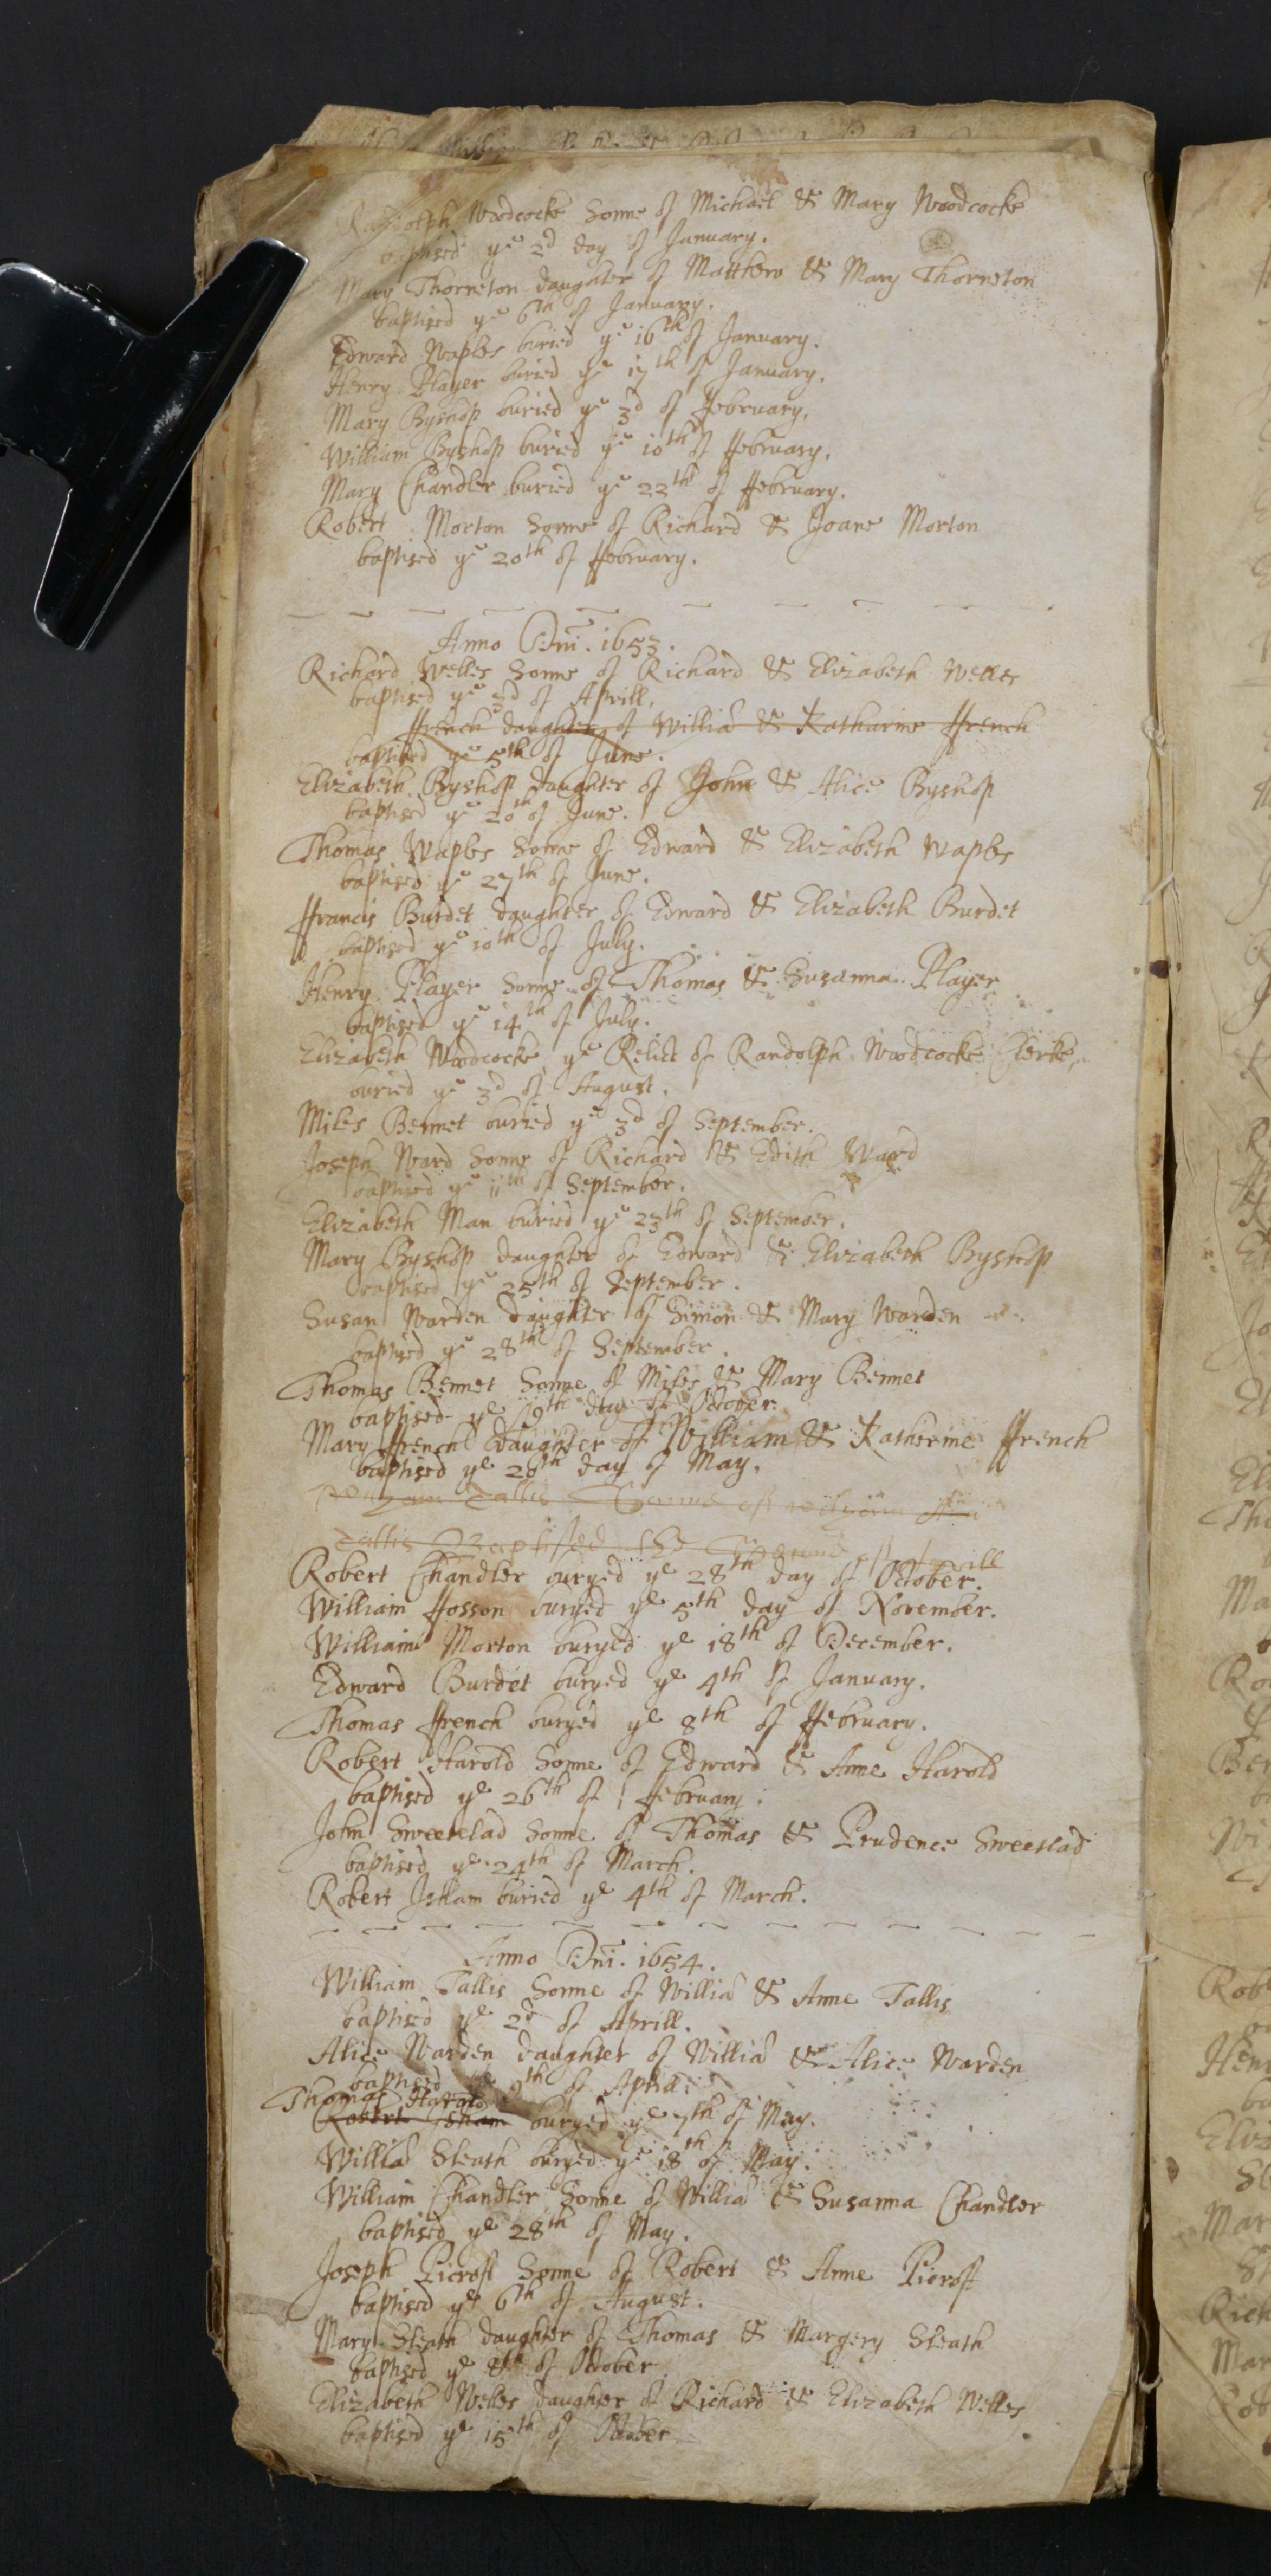 Randolph Woodcocke Sonne of Michael & Mary Woodcocke
baptised ye 2d day of January.
Mary Thorneton daughter of Matthew & Mary Thorneton
baptised ye 6th of January.
Edward Waples buried ye 16th of January.
Henry Player buried ye 17th of January.
Mary Byshop buried ye 3d of February.
William Byshop buried ye 10th of ffebruary.
Mary Chandler buried ye 22th of ffebruary.
Robert Morton Sonne of Richard & Joane Morton
baptised ye 20th of ffebruary.
Anno Dni. 1653.
Richard Welles Sonne of Richard & Elizabeth Welles
baptised ye 3d of Aprill.
ffrench daughter of Willia & Katharine ffrench
baptised ye 5th of June.
Elizabeth Byshop daughter of John & Alice Byshop
baptised ye 20th of June.
Thomas Waples Sonne of Edward & Elizabeth Waples
baptised ye 27th of June.
ffrancis Burdet daughter of Edward & Elizabeth Burdet
baptised ye 10th of July.
Henry Player Sonne of Thomas & Susanna Player
baptised ye 14th of July.
Elizabeth Woodcocke ye Relict of Randolph Woodcocke Clerke,
buried ye 3d of August.
Miles Bennet buried ye 3d of September.
Joseph Ward Sonne of Richard & Edith Ward
baptised ye 11th of September.
Elizabeth Man buried ye 23th of September.
Mary Byshop daughter of Edward & Elizabeth Byshop
baptised ye 25th of September.
Susan Warden daughter of Simon & Mary Warden
baptised ye 28th of September.
Thomas Bennet Sonne of Miles & Mary Bennet
baptised ye 19th day of October.
Mary ffrench daughter of William & Katherine ffrench
baptised ye 20th day of May.
Tallis Sonne of
Tallis Baptissed the Second of Aprill
Robert Chandler buryed ye 28th day of October.
William ffosson buryed ye 5th day of November.
William Morton buryed ye 18th of December.
Edward Burdet buryed ye 4th of January.
Thomas ffrench buryed ye 8th of ffebruary.
Robert Harold Sonne of Edward & Anne Harold
baptised ye 26th of ffebruary.
John Sweetelad Sonne of Thomas & Prudence Sweetlad
baptised ye 24th of March.
Robert Isham buried ye 4th of March.
Anno Dni. 1654.
William Tallis Sonne of Willia & Anne Tallis
baptised ye 2d of Aprill.
Alice Warden daughter of Willia & Alice Warden
baptised ye 9th of Aprill.
Thomas Harold
Robert Isham buryed ye 7th of May.
Willia Sleath buryed ye 18th of May.
William Chandler Sonne of Willia & Susanna Chandler
baptised ye 28th of May.
Joseph Picroft Sonne of Robert & Anne Picroft
baptised ye 6th of August.
Mary Sleath daughter of Thomas & Margery Sleath
baptised ye 8th of October
Elizabeth Welles daughter of Richard & Elizabeth Welles
baptised ye 15th of October